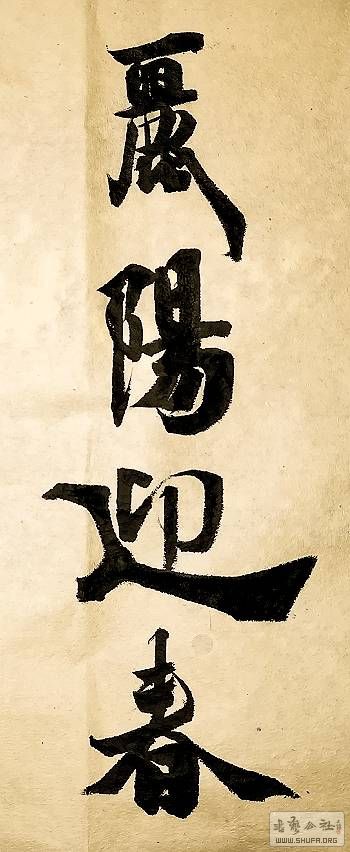 麗陽迎春
書藝公社
WWW.SHUFA.ORG